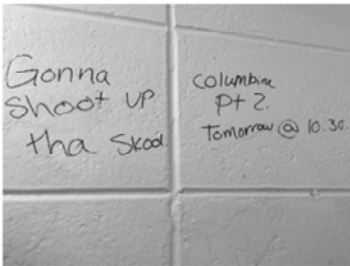 Gonna
shoot up
tha Skool
Columbine
Pt 2.
Tomorrow @ 10:30.